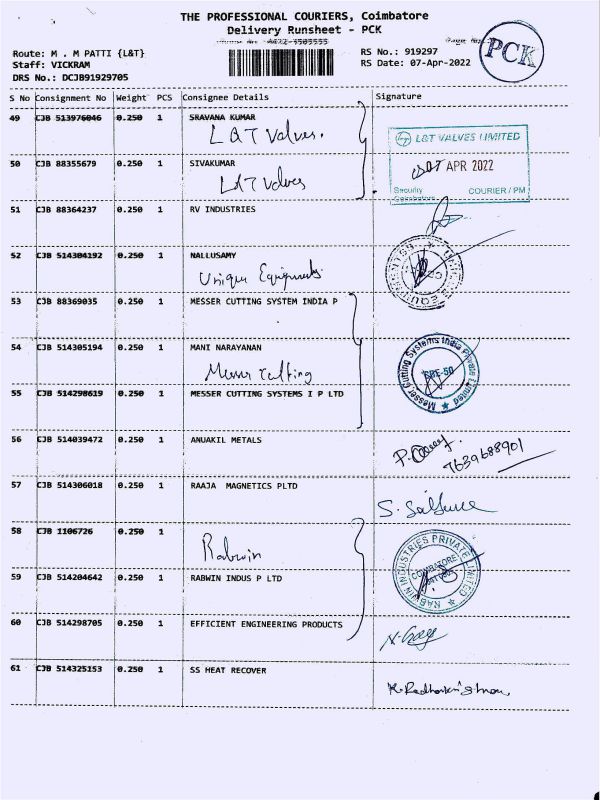 THE PROFESSIONAL COURIERS, Coimbatore
Delivery Runsheet - PCK
PCK
Route: M . M PATTI {L&T}
Staff: VICKRAM
DRS No.: DCJB91929705
RS No.: 919297
RS Date: 07-Apr-2022
S No Consignment No Weight PCS Consignee Details Signature
49 CJB 513976046 0.250 1 SRAVANA KUMAR
L&T Valves.
L&T VALVES LIMITED
07 APR 2022
Security COURIER / PM
Coimbatore
50 CJB 88355679 0.250 1 SIVAKUMAR
L&T Valves
51 CJB 88364237 0.250 1 RV INDUSTRIES
52 CJB 514304192 0.250 1 NALLUSAMY
Unique Equipments
53 CJB 88369035 0.250 1 MESSER CUTTING SYSTEM INDIA P
54 CJB 514305194 0.250 1 MANI NARAYANAN
Messer Cutting
Messer Cutting Systems India Private Limited
55 CJB 514298619 0.250 1 MESSER CUTTING SYSTEMS I P LTD
56 CJB 514039472 0.250 1 ANUAKIL METALS
7639688901
57 CJB 514306018 0.250 1 RAAJA MAGNETICS PLTD
58 CJB 1106726 0.250 1
Rabwin
RABWIN INDUSTRIES PRIVATE LIMITED
COIMBATORE
59 CJB 514204642 0.250 1 RABWIN INDUS P LTD
60 CJB 514298705 0.250 1 EFFICIENT ENGINEERING PRODUCTS
61 CJB 514325153 0.250 1 SS HEAT RECOVER